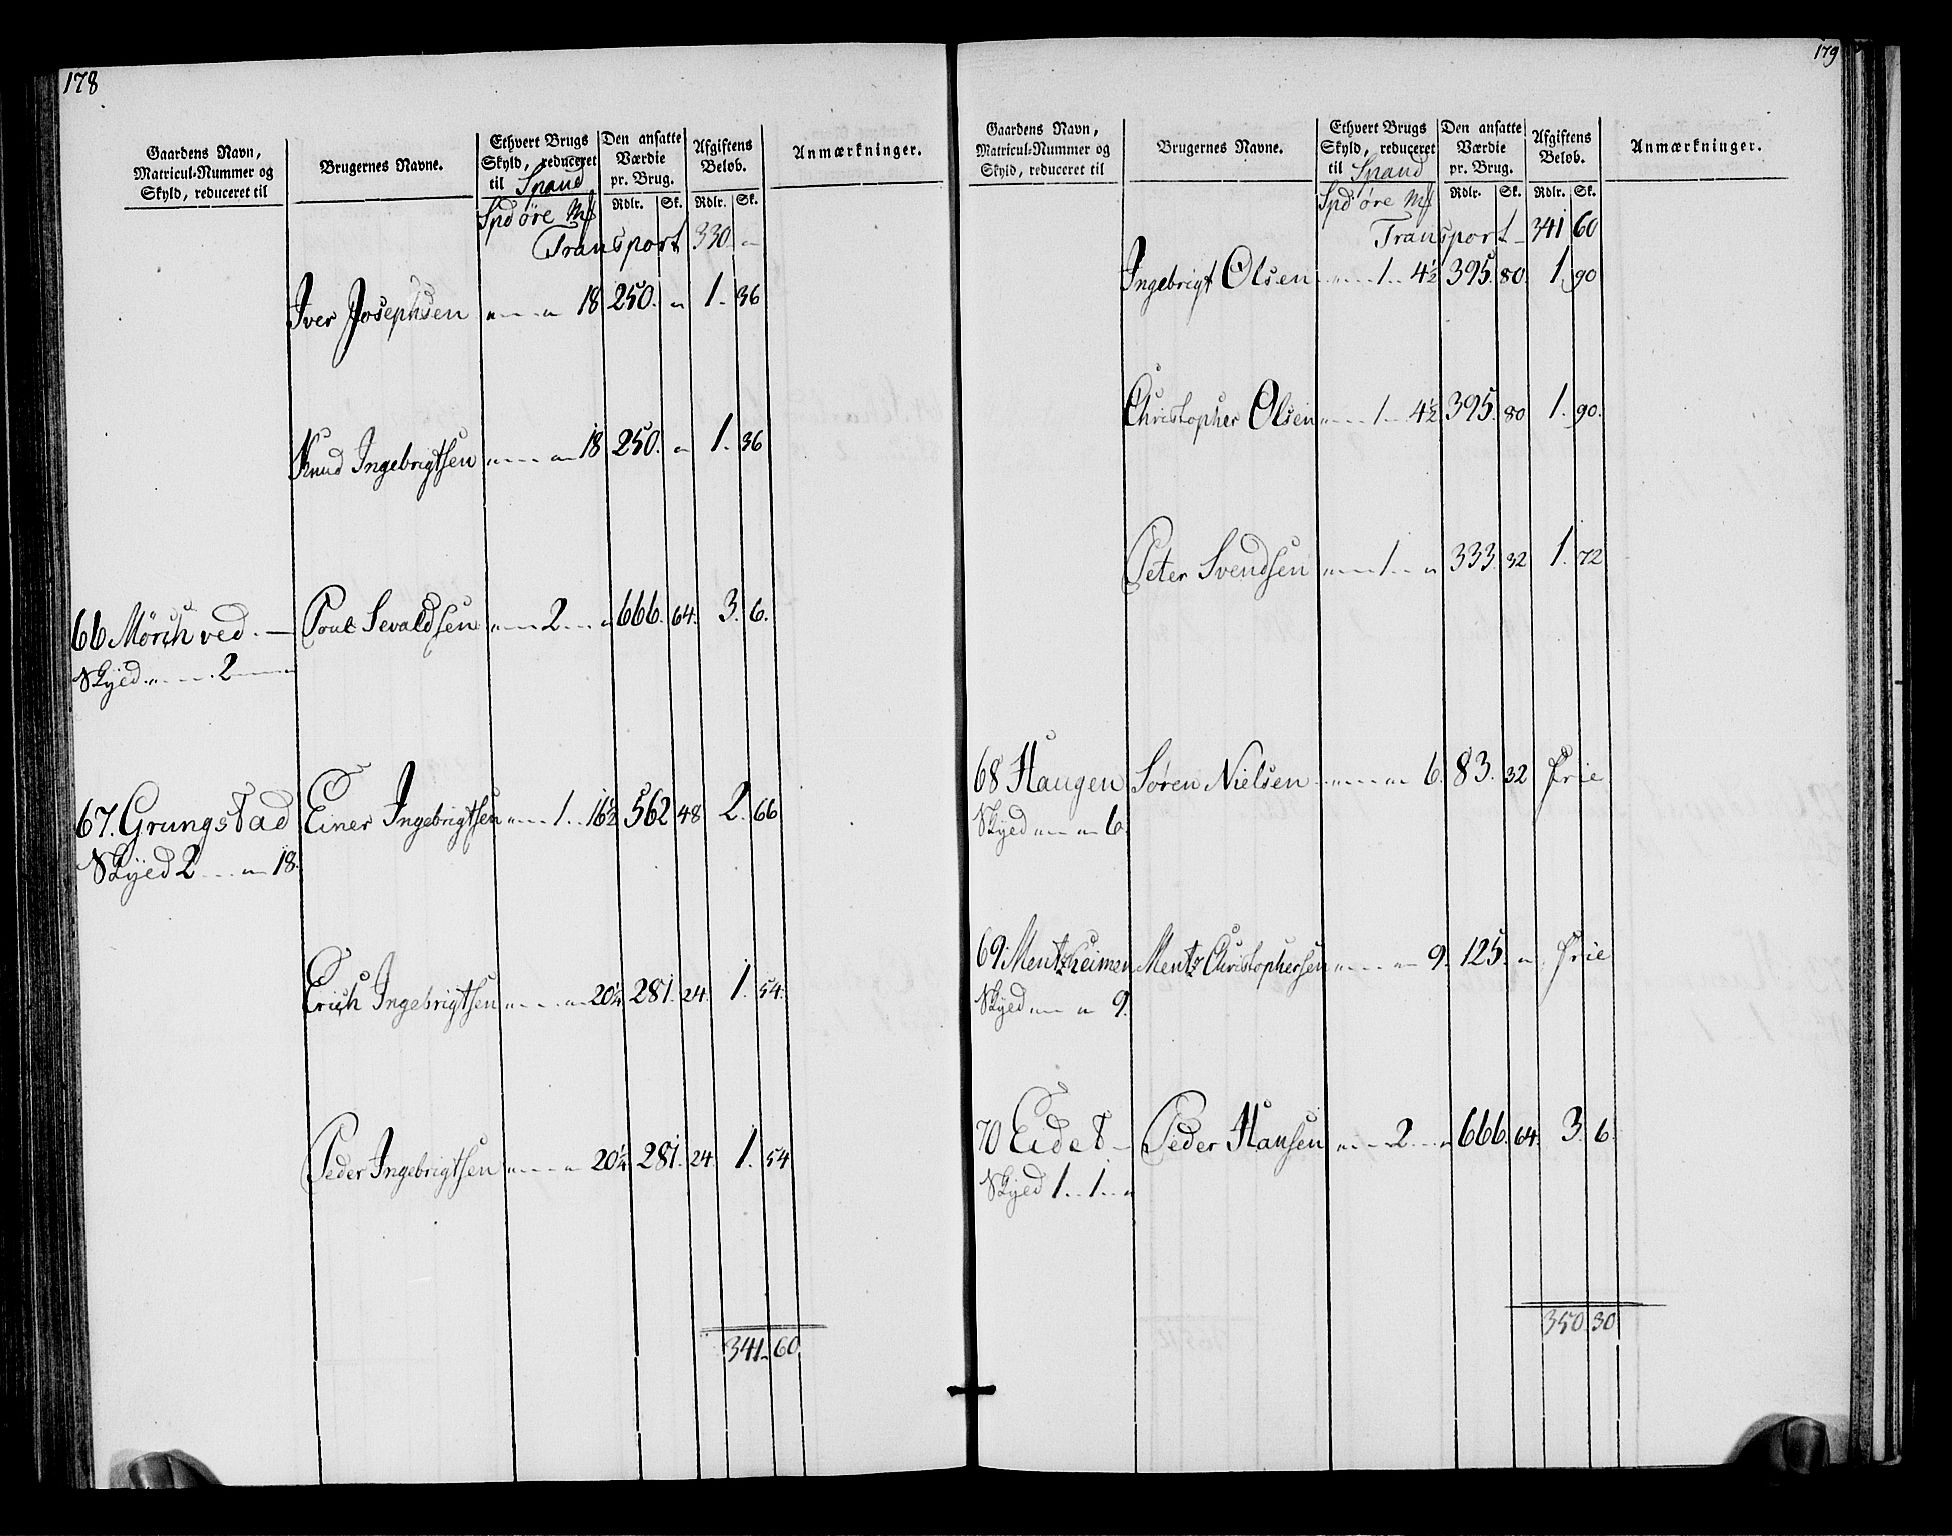 178
Gaardens Navn, Matricul-Nummer og Skyld, reduceret til
Brugernes Navne.
Ethvert Brugs Skyld, reduceret til Spand
Den ansatte Værdie pr. Brug.
Afgiftens Beløb.
Anmærkninger.
Spd øre Mſ Rdlr. Sk. Rdlr. Sk.
Transport 330. „
Iver Josephsen „ „ 18 250. „ 1. 36
Knud Ingebrigtsen „ „ 18 250. „ 1. 36
66 Mörch ved. — Poul Sevaldsen „ 2 „ 666. 64. 3. 6.
Skyld „ 2 „
67. Grungstad Einer Ingebrigtsen „ 1 16½ 562 48 2. 66
Skyld 2 „ 18.
Erich Ingebrigtsen „ „ 20¼ 281. 24. 1. 54.
Peder Ingebrigtsen „ „ 20¼ 281. 24. 1. 54
341. 60.
179
Gaardens Navn, Matricul-Nummer og Skyld, reduceret til
Brugernes Navne.
Ethvert Brugs Skyld, reduceret til Spand
Den ansatte Værdie pr. Brug.
Afgiftens Beløb.
Anmærkninger.
Spd øre Mſ Rdlr. Sk. Rdlr. Sk.
Transport 341 60
Ingebrigt Olsen „ 1 4½ 395. 80. 1. 90
Christopher Olsen „ 1 4½ 395. 80 1. 90.
Peter Svendsen „ 1 „ 333. 32 1. 72
68 Haugen Søren Nielsen „ „ 6. 83. 32 Frie
Skyld „ „ 6.
69. Mentzheimen Mentz Christophersen „ „ 9. 125. „ Frie
Skyld „ „ 9.
70 Eidet — Peder Hansen „ 2 „ 666. 64. 3. 6.
Skyld 1 1 „
350. 30